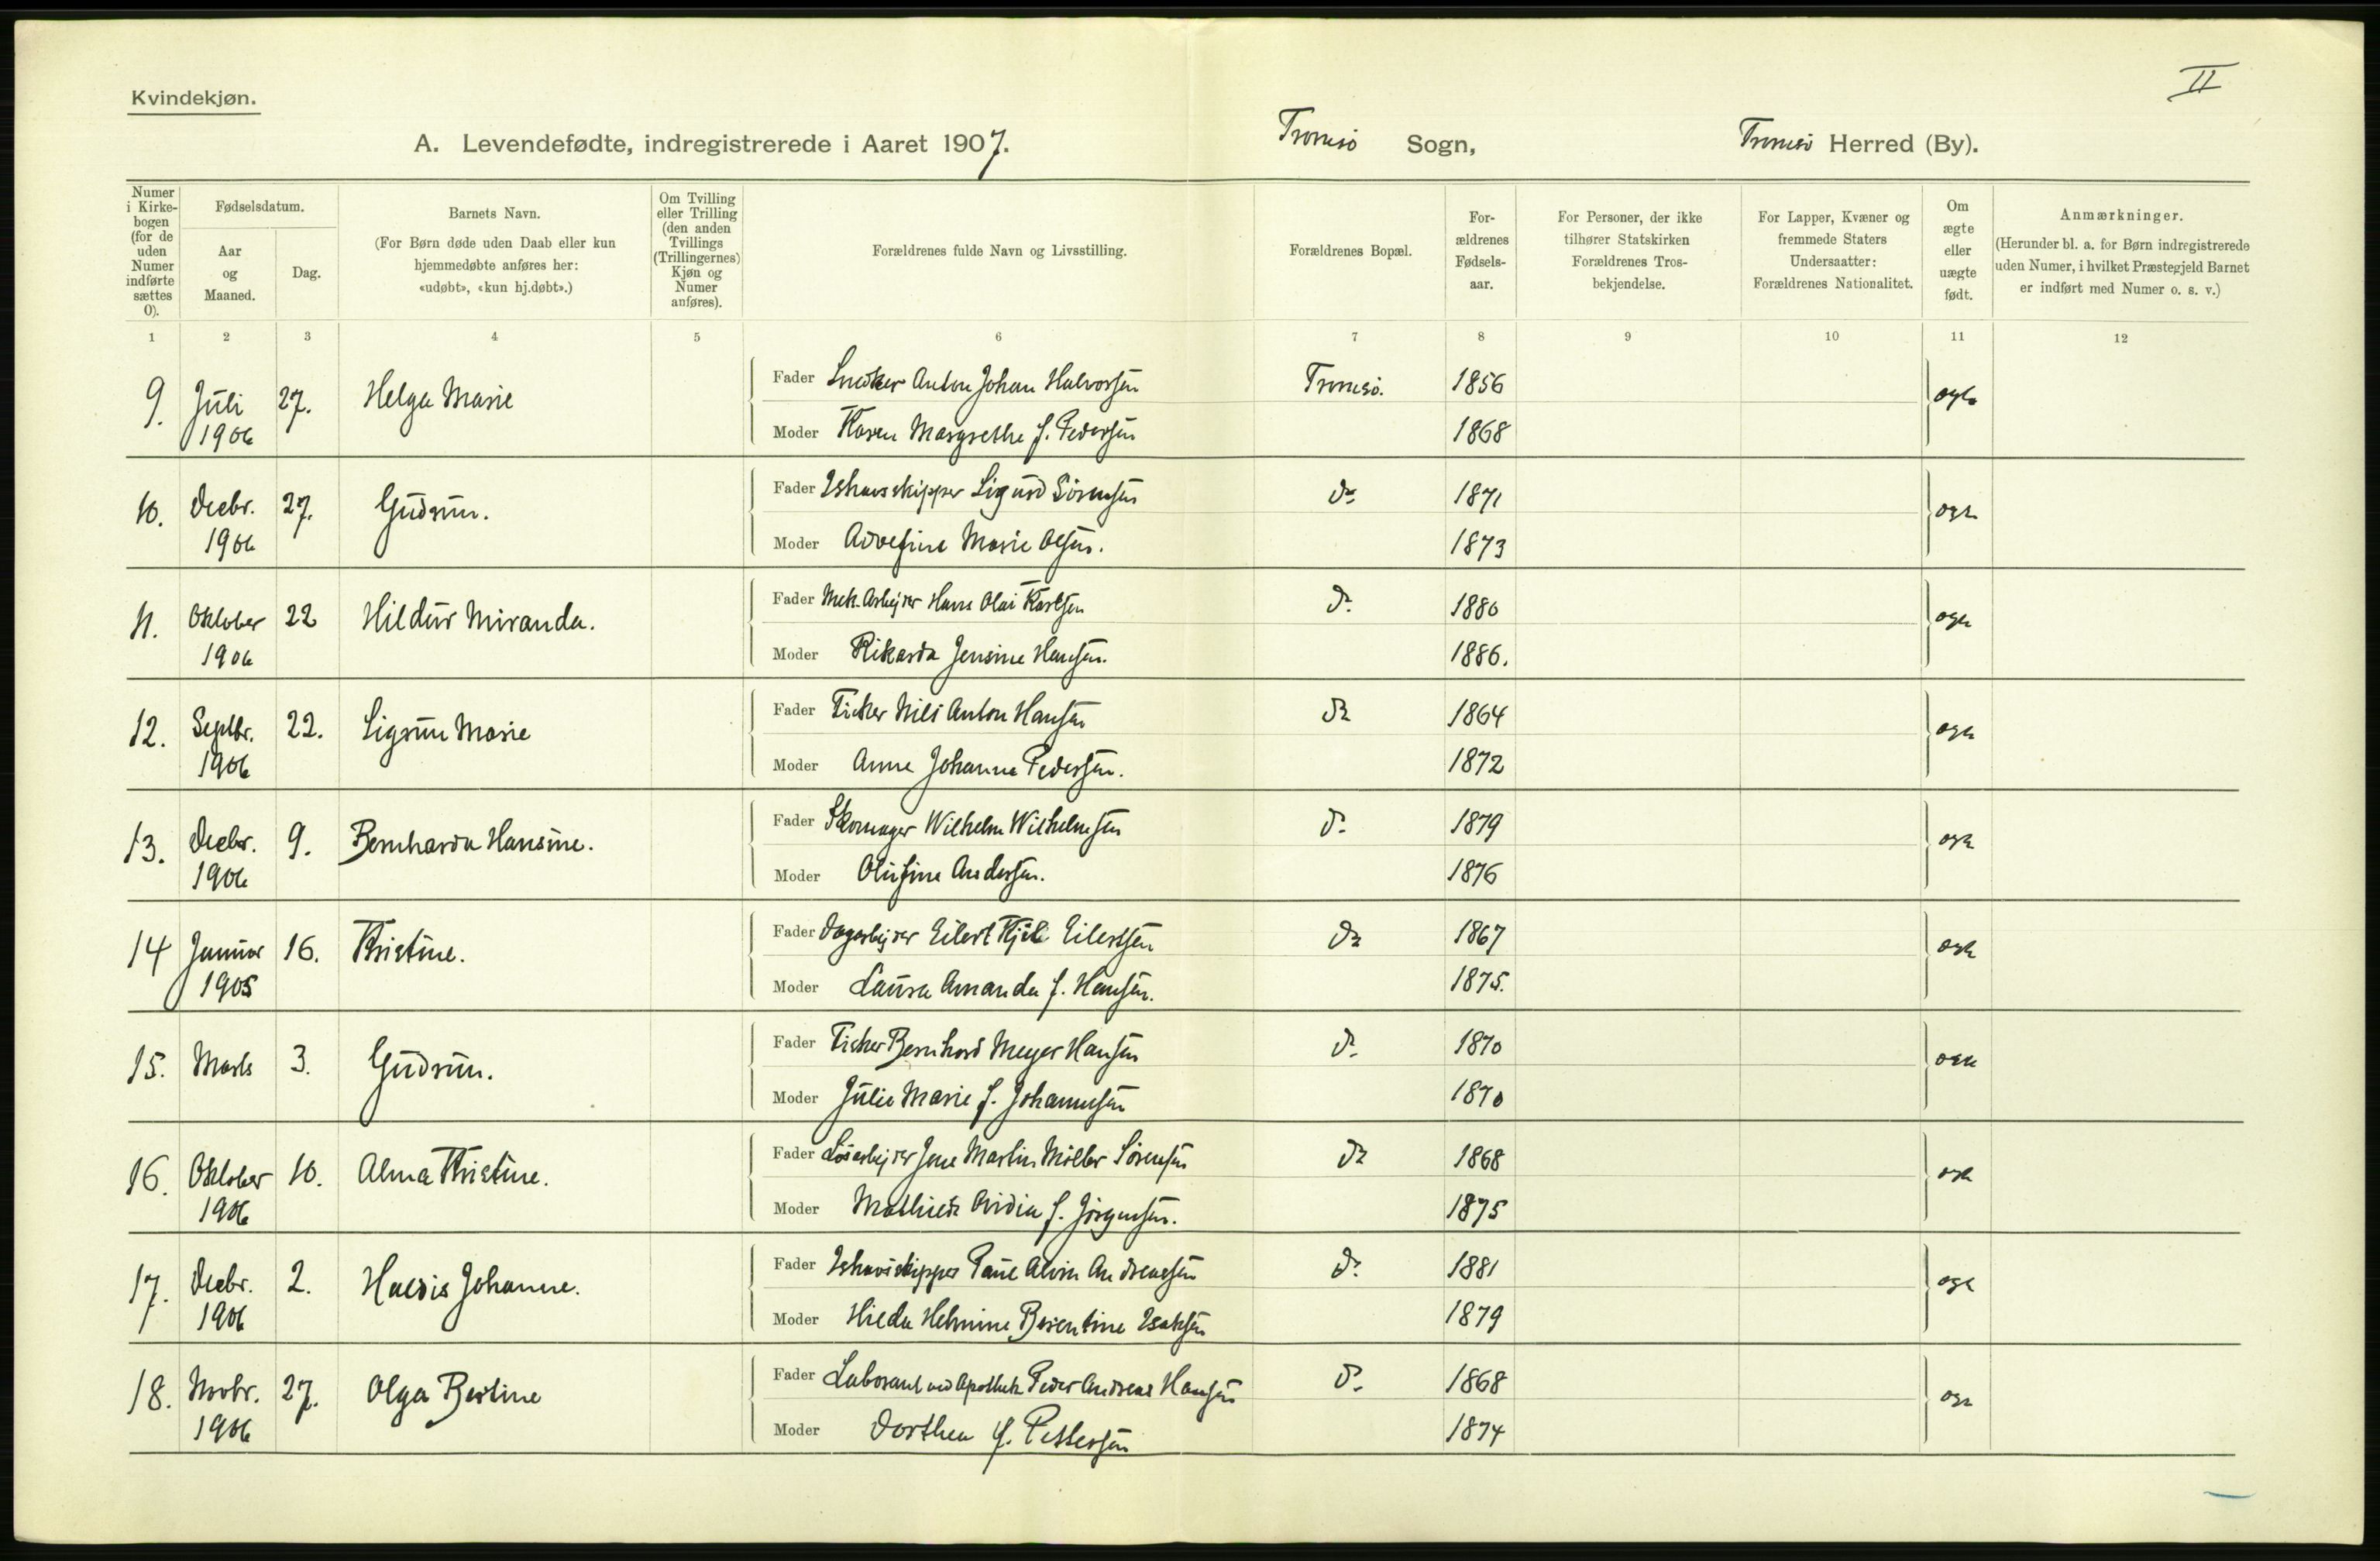 II
Kvindekjøn.
A. Levendefødte, indregistrerede i Aaret 1907. Tromsö Sogn, Tromsö Herred (By).
Numer i Kirkebogen (for de uden Numer indførte sættes 0).
Fødselsdatum.
Aar og Maaned.
Dag.
Barnets Navn.
(For Børn døde uden Daab eller kun hjemmedøbte anføres her: «udøbt», «kun hj.døbt».)
Om Tvilling eller Trilling (den anden Tvillings (Trillingernes) Kjøn og Numer anføres).
Forældrenes fulde Navn og Livsstilling.
Forældrenes Bopæl.
For-ældrenes Fødsels-aar.
For Personer, der ikke tilhører Statskirken Forældrenes Tros-bekjendelse.
For Lapper, Kvæner og fremmede Staters Undersaatter: Forældrenes Nationalitet.
Om ægte eller uægte født.
Anmærkninger.
(Herunder bl. a. for Børn indregistrerede uden Numer, i hvilket Præstegjeld Barnet er indført med Numer o. s. v.)
1 2 3 4 5 6 7 8 9 10 11 12
9. Juli 27. Helga Marie Fader Snedker Anton Johan Halvorsen Tromsö. 1856 ægte
1906 Moder Karen Margrethe f. Pedersen 1868
10. Decbr. 27. Gudrun. Fader Ishavsskipper Sigurd Sörensen do 1871 ægte
1906 Moder Marie Olsen. 1873
11. Oktober 22 Hildur Miranda. Fader Mek. Arbejder Hans Olai Karlsen do 1880 ægte
1906 Moder Rikarda Jensine Hansen. 1886.
12. Septbr. 22. Sigrun Marie Fader Fisker Nils Anton Hansen do 1864 ægte
1906 Moder Anne Johanna Pedersen. 1872
13. Decbr. 9. Bernharda Hansine. Fader Skomager Wilhelm Wilhelmsen do 1879 ægte
1906 Moder Olufine Andersen. 1876
14 Januar 16. Kristine. Fader Dagarbejder Eilert Eilertsen do 1867 ægte
1905 Moder Laura Amanda f. Hansen. 1875.
15. Marts 3. Gudrun. Fader Fisker Bernhard Meyer Hansen do 1870 ægte
Moder Julie Marie f. Johannesen 1870
16. Oktober 10. Alma Kristine. Fader Lösarbejder Jens Martin Möller Sörensen do 1868 ægte
1906 Moder Mathilde f. Jörgensen. 1875
17. Decbr. 2. Haldis Johanne. Fader Ishavsskipper Paul Andreassen do 1881 ægte
1906 Moder Hilda Helmine Berentine Isaksen 1879
18. Novbr. 27. Olga Bertine Fader Laborant ved Apothek Peder Andreas Hansen do 1868 ægte
1906 Moder Dorthea f. Pettersen 1874